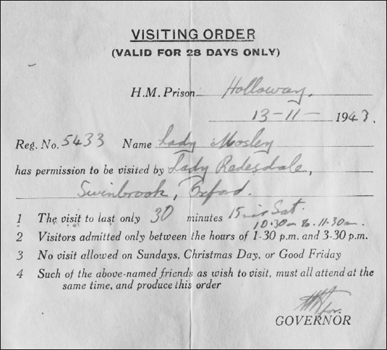 VISITING ORDER
(VALID FOR 28 DAYS ONLY)
H.M. Prison Holloway.
13-11- 1943.
Reg. No. 5433 Name Lady Mosley
has permission to be visited by Lady Redesdale,
Swinbrook, Oxford.
1 The visit to last only 30 minutes 15 is Sat.
10.30 to 11.30 am.
2 Visitors admitted only between the hours of 1-30 p.m. and 3-30 p.m.
3 No visit allowed on Sundays, Christmas Day, or Good Friday
4 Such of the above-named friends as wish to visit, must all attend at
same time, and produce this order
for.
GOVERNOR